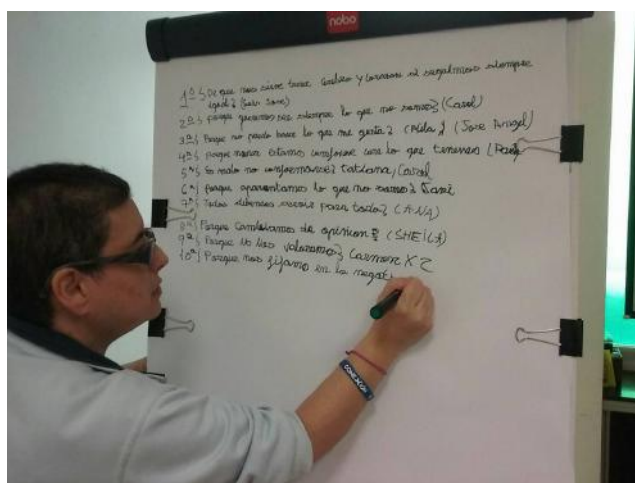 nobo
1º ¿De que nos sirve tener cerebro y corazon si seguimos siempre
igual? (Luis Jose)
2º ¿Porque queremos ser siempre lo que no somos? (Carol)
3º ¿Porque no puedo hacer lo que me gusta? (Jose Angel)
4º ¿Porque nunca estamos conforme con lo que tenemos (
5º ¿Es malo no conformarse? Tatiana, Carol
6º ¿Porque aparentamos lo que no somos? Jose
7º ¿Todos debemos servir para todo? (ANA)
8º ¿Porque Cambiamos de opinion? (SHEILA)
9º ¿Porque No Nos valoramos? Carmen X 2
10º ¿Porque nos fijamos en lo negati